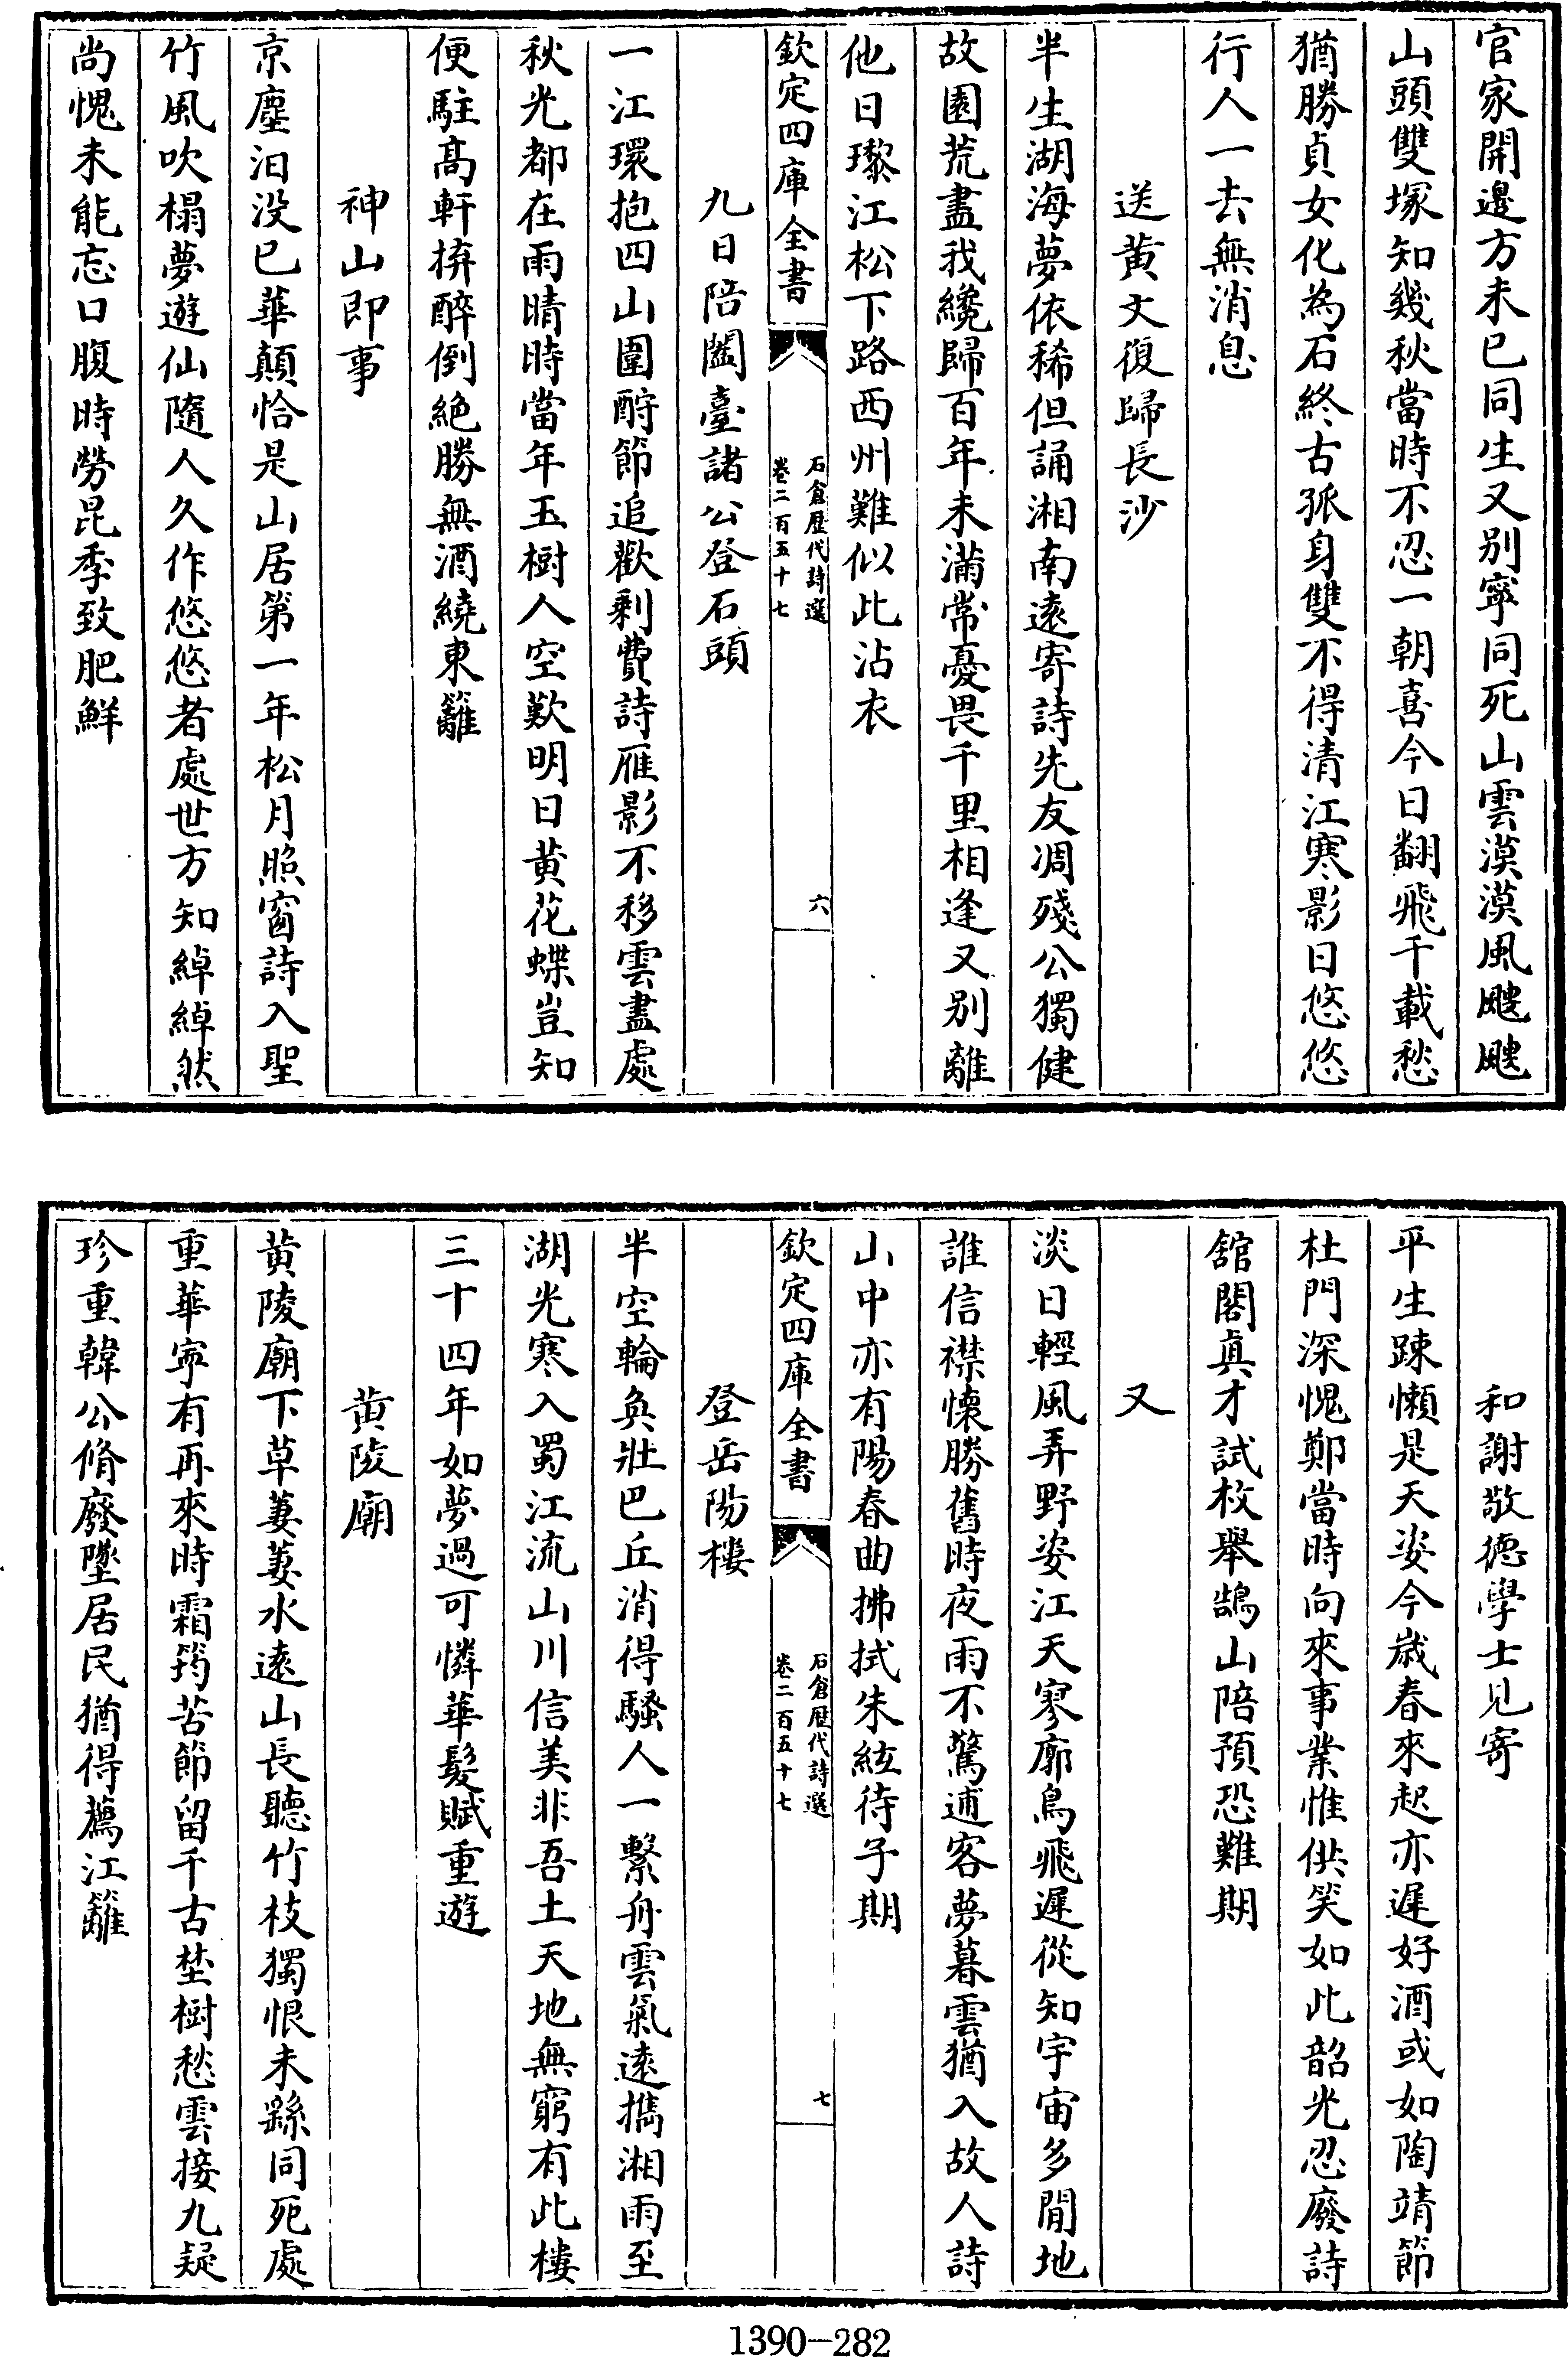 官家開邊方未已同生又别寧同死山雲漠漠風颼颼
山頭雙塚知幾秋當時不忍一朝喜今日翻飛千載愁
猶勝貞女化為石終古孤身雙不得清江寒影日悠悠
行人一去無消息
送黄文復歸長沙
半生湖海夢依稀但誦湘南逺寄詩先友凋殘公獨健
故園荒盡我纔歸百年未滿常憂畏千里相逢又别離
他日瓈江松下路西州難似此沾衣
欽定四庫全書
石倉歷代詩選
卷二百五十七
六
九日陪闔臺諸公登石頭
一江環抱四山圍酧節追歡剩費詩雁影不移雲盡處
秋光都在雨晴時當年玉樹人空歎明日黄花蝶豈知
便駐髙軒拚醉倒絶勝無酒繞東籬
神山即事
京塵汨没已華顛恰是山居第一年松月照窗詩入聖
竹風吹榻夢遊仙隨人久作悠悠者處世方知綽綽然
尚愧未能忘口腹時勞昆季致肥鮮
和謝敬徳學士見寄
平生踈懶是天姿今嵗春來起亦遲好酒或如陶靖節
杜門深愧鄭當時向來事業惟供笑如此韶光忍廢詩
舘閣真才試枚舉鵠山陪預恐難期
又
淡日輕風弄野姿江天寥廓鳥飛遲從知宇宙多閒地
誰信襟懐勝舊時夜雨不驚逋客夢暮雲猶入故人詩
山中亦有陽春曲拂拭朱絃待子期
欽定四庫全書
石倉歷代詩選
卷二百五十七
七
登岳陽樓
半空輪奐壯巴丘消得騷人一繫舟雲氣逺擕湘雨至
湖光寒入蜀江流山川信美非吾土天地無窮有此樓
三十四年如夢過可憐華髮賦重遊
黄陵廟
黄陵廟下草萋萋水逺山長聽竹枝獨恨未繇同死處
重華寜有再來時霜筠苦節留千古埜樹愁雲接九疑
珍重韓公脩廢墜居民猶得薦江籬
1390-282